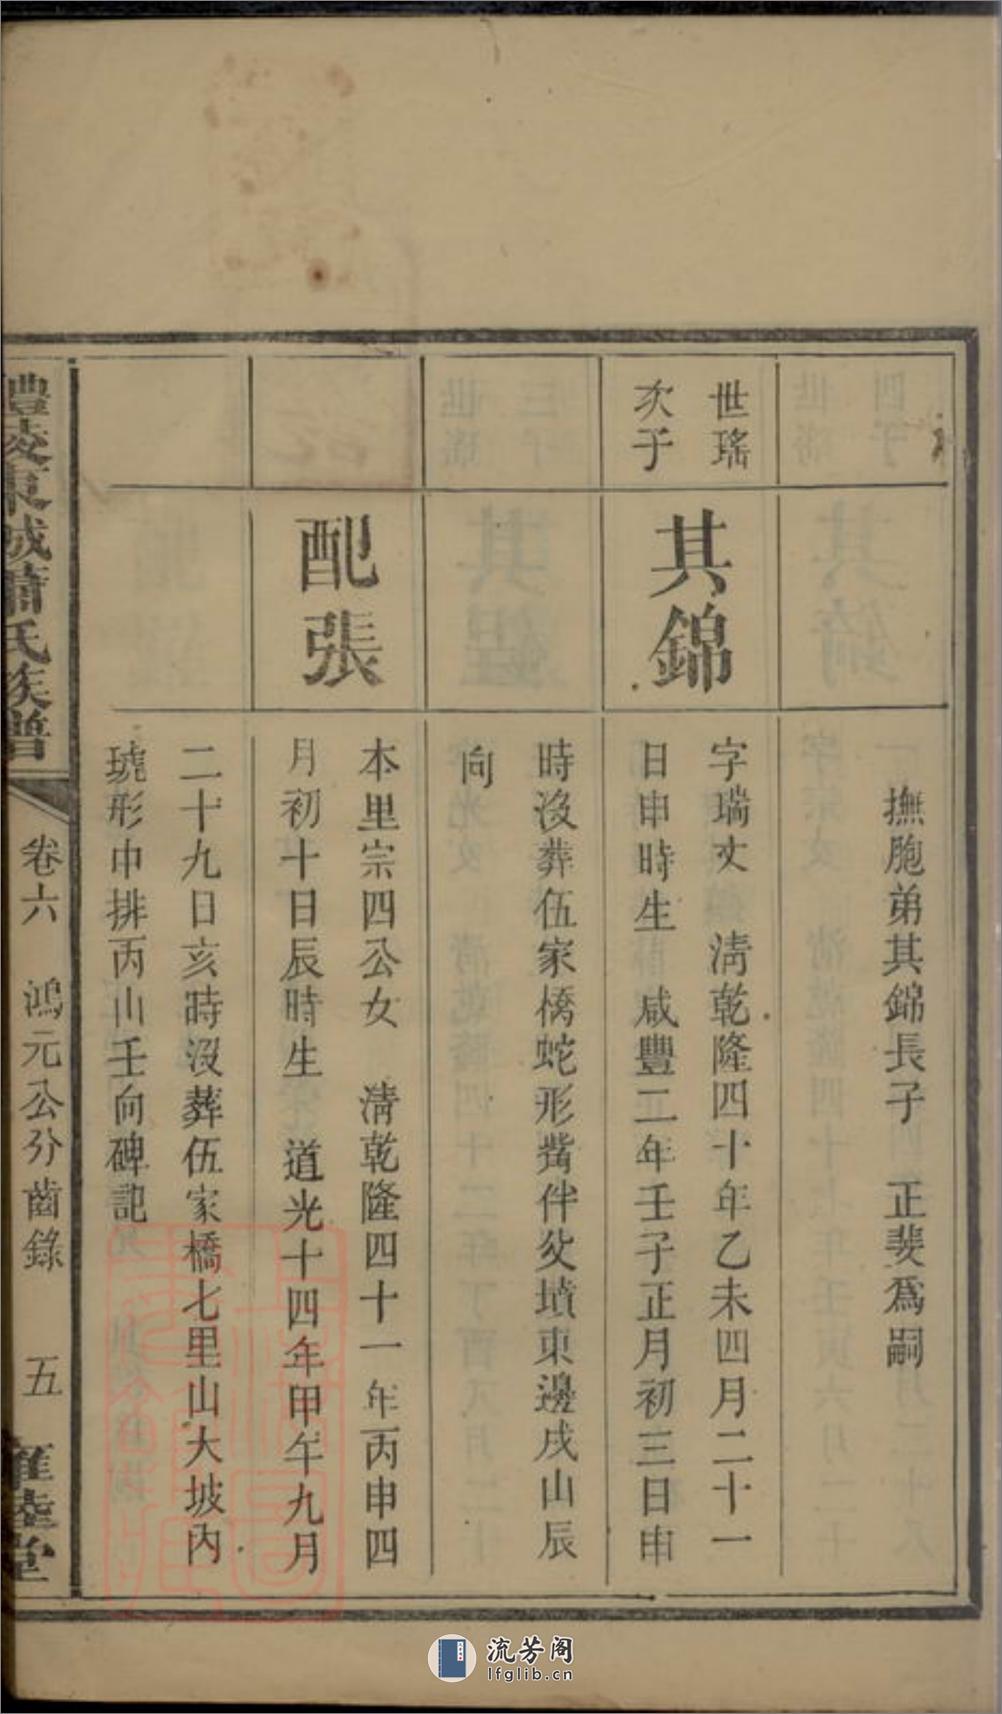 撫胞弟其錦長子　正斐爲嗣
世瑤
次子
其錦
字瑞丈　淸乾隆四十年乙未四月二十一
日申時生　咸豐二年壬子正月初三日申
時沒葬伍家橋蛇形觜伴父墳東邊戌山辰
向
配張
本里宗四公女　淸乾隆四十一年丙申四
月初十日辰時生　道光十四年甲午九月
二十九日亥時沒葬伍家橋七里山大坡內
琥形中排丙山壬向碑記
醴陵東城蕭氏族譜
卷六　鴻元公分齒錄　五　雍睦堂
流芳阁
lfglib.cn